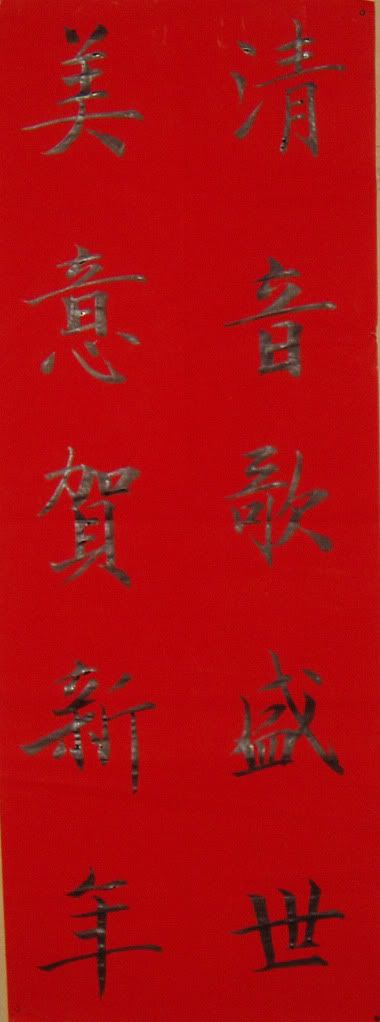 清音歌盛世
美意賀新年